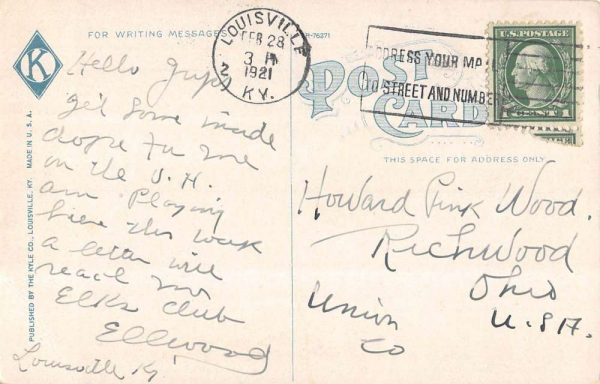 FOR WRITING MESSAGES
R-76371
K
LOUISVILLE
FEB 28
3 P
1921
KY.
ADDRESS YOUR MA
TO STREET AND NUMBER
U.S. POSTAGE
1 CENT 1
POST
CARD
THIS SPACE FOR ADDRESS ONLY
PUBLISHED BY THE KYLE CO., LOUISVILLE, KY. MADE IN U.S.A.
Hello
get some inside
dope for me
on the U.H.
am Playing
here this week
a letter will
reach me
Elks Club
Ellwood
Louisville Ky.
Howard Pink Wood.
Richwood
Ohio
Union
Co
U.S.A.